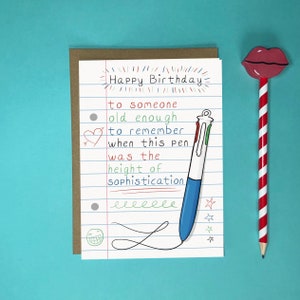 Happy Birthday
to someone
old enough
to remember
when this pen
was the
height of
sophistication